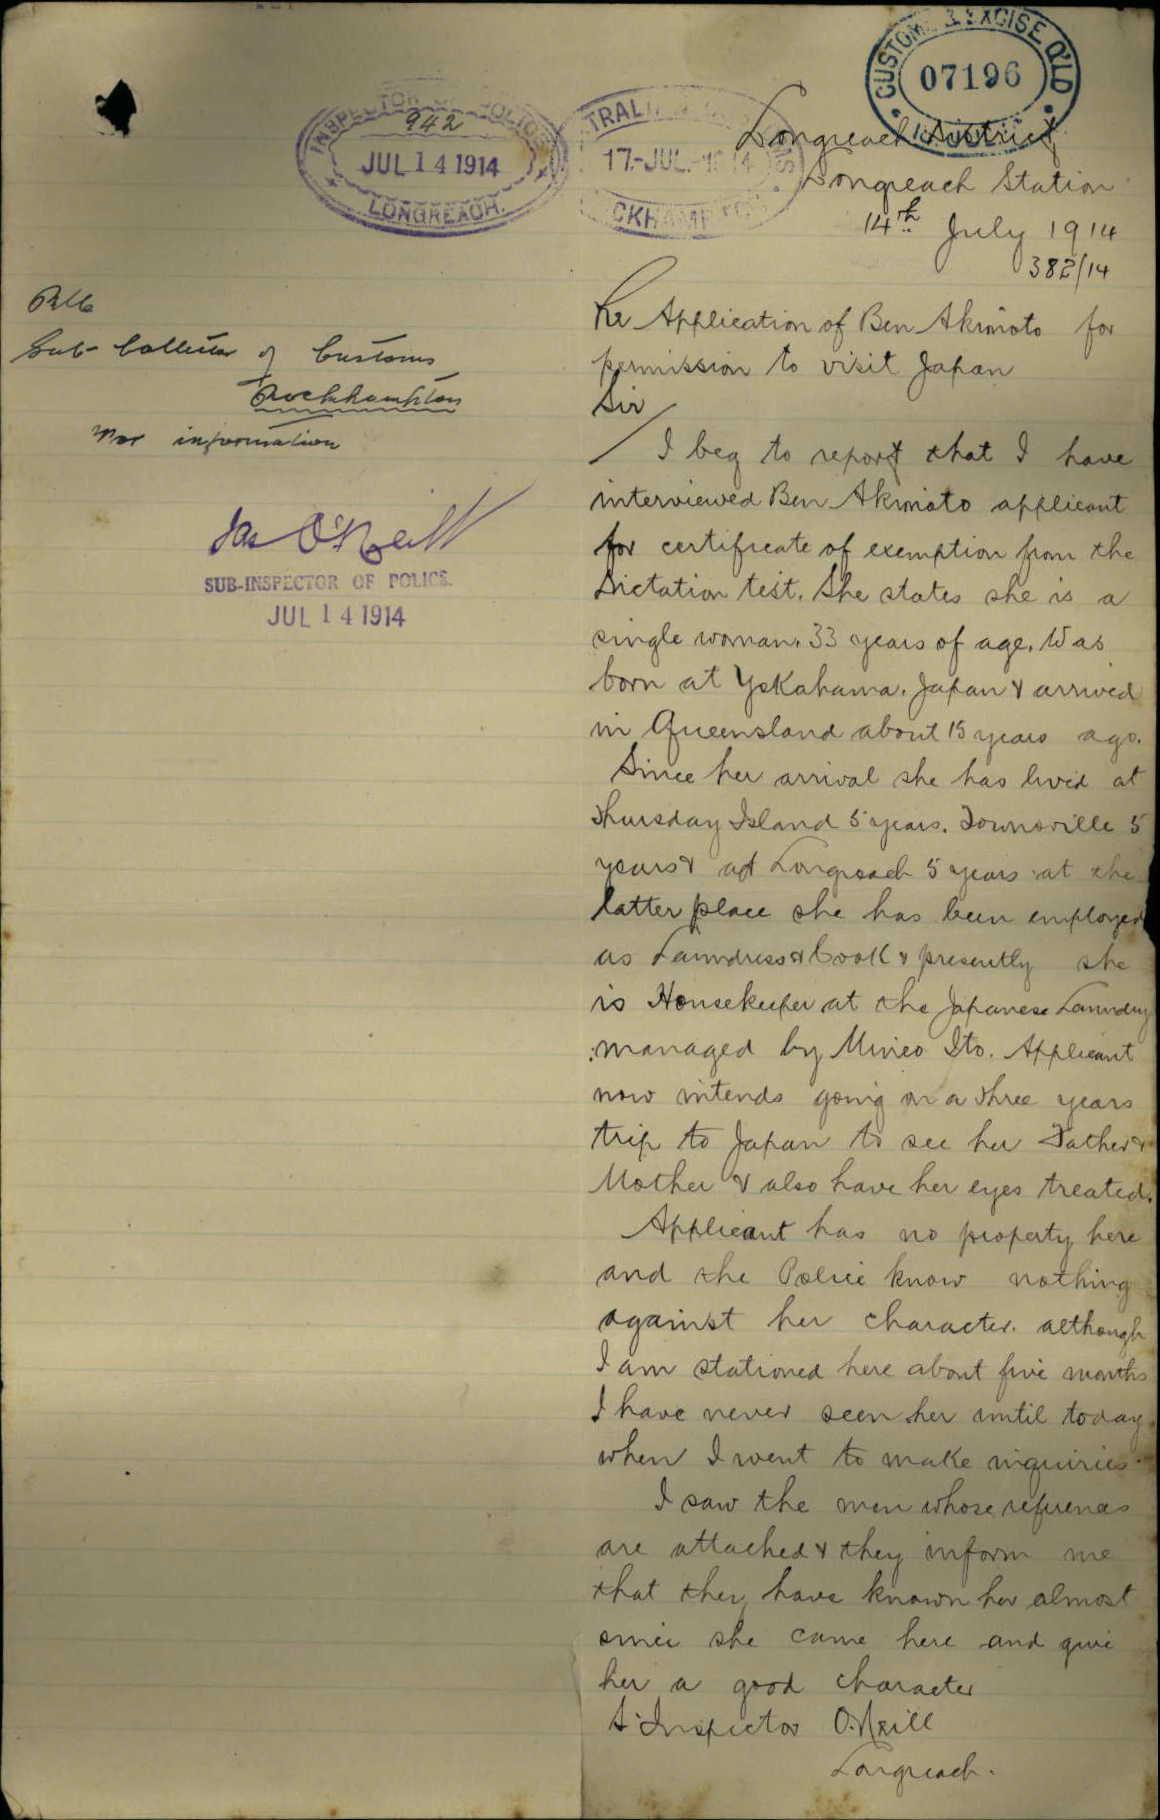 CUSTOMS & EXCISE Q'LD
07196
INSPECTOR OF POLICE
942
JUL 14 1914
LONGREACH.
17-JUL-1914
Longreach District
Longreach Station
14th July 1914
382/14
Sub-Collector of Customs
Rockhampton
For information
Jas O'Neill
SUB-INSPECTOR OF POLICE.
JUL 14 1914
Re Application of Ben Akimoto for
permission to visit Japan
Sir
I beg to report that I have
interviewed Ben Akimoto applicant
for certificate of exemption from the
Dictation test. She states she is a
single woman. 33 years of age. Was
born at Yokahama. Japan & arrived
in Queensland about 15 years ago.
Since her arrival she has lived at
Thursday Island 5 years. Townsville 5
years & at Longreach 5 years at the
latter place she has been employed
as Laundress & Cook & presently she
is Housekeeper at the Japanese Laundry
managed by Mineo Ito. Applicant
now intends going on a three years
trip to Japan to see her Father &
Mother & also have her eyes treated.
Applicant has no property here
and the Police know nothing
against her character. although
I am stationed here about five months
I have never seen her until today
when I went to make inquiries
I saw the men whose references
are attached & they inform me
that they have known her almost
since she came here and give
her a good character
S. Inspector O.Neill
Longreach.